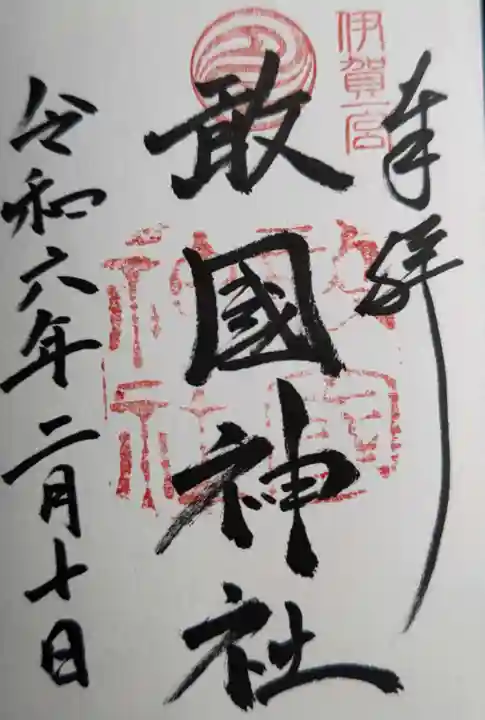 伊賀一宮
奉拝
敢國神社
敢國神社
令和六年二月十日